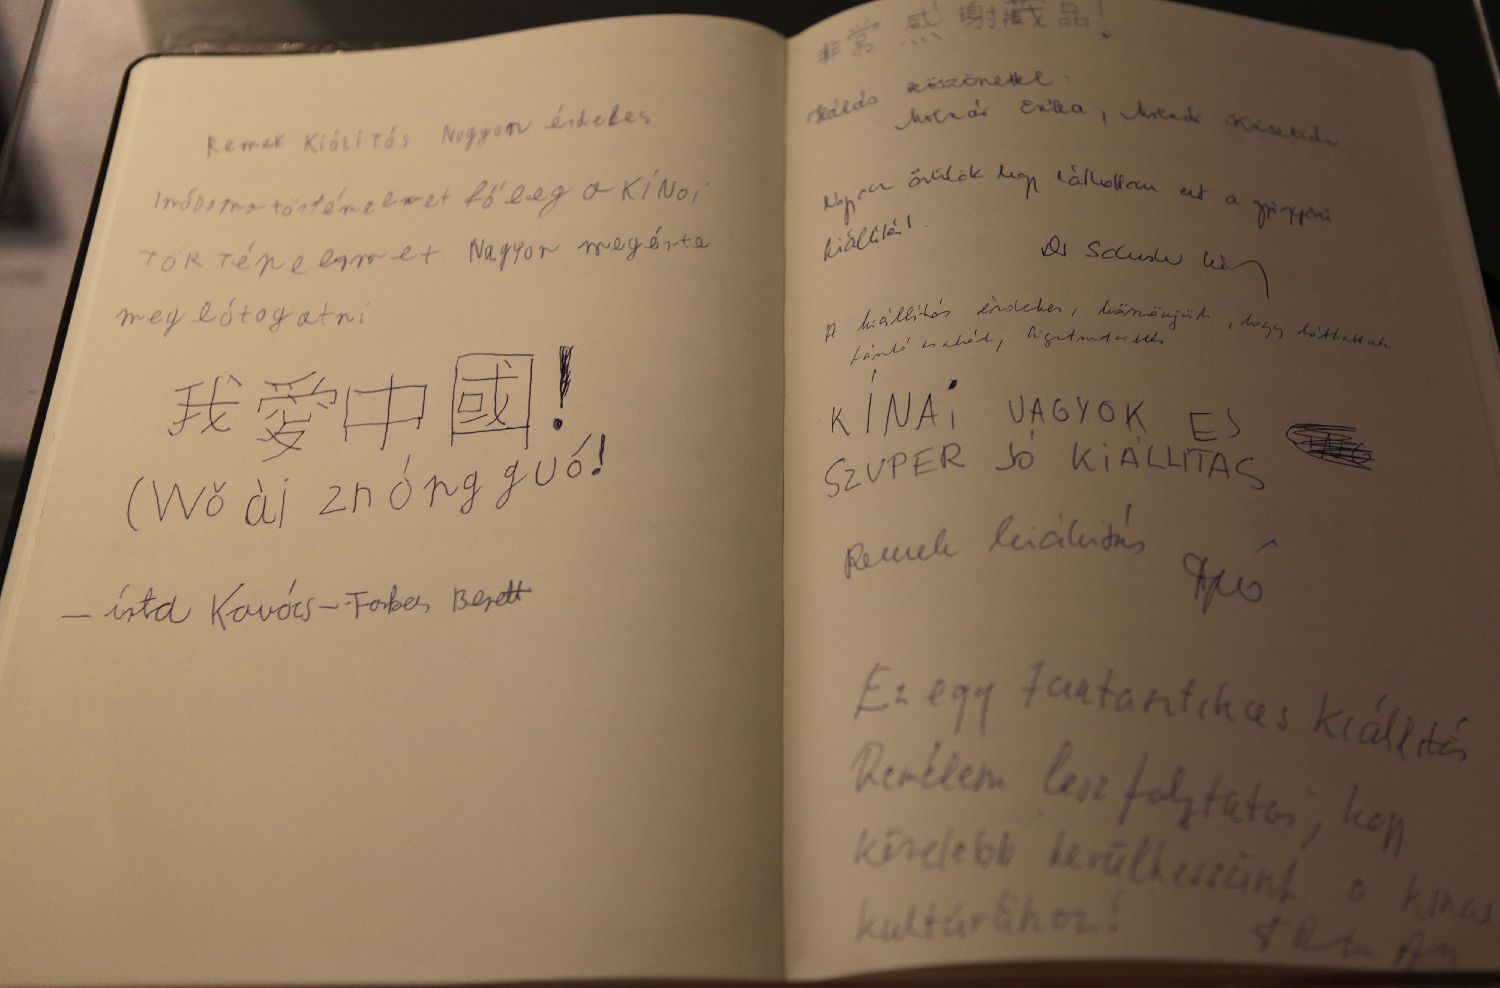 Remek Kiálítás Nagyon érdekes
Imádom a történelmet főleg a KÍNai
TÖRTénelmet Nagyon megérte
meglátogatni
我愛中國!
(Wǒ ài zhóng guó!
– írta Kovács–Forbes
非常感谢藏品!
Hálás köszönettel.
Molnár Erika, Molnár Krisztián
Nagyon örülök hogy láthattam ezt a gyönyörű
kiállítást.
Dr
A kiállítás érdekes, köszönjük, hogy láthattuk.
László család, Szigetmonostor
KÍNAi VAGYOK ES
SZUPER JÓ KiÁLLITAS
Remek kiálitás
Ez egy fantasztikus kiállitás
Remélem lesz folytatás, hogy
közelebb kerülhessünk a kinai
kultúrához!